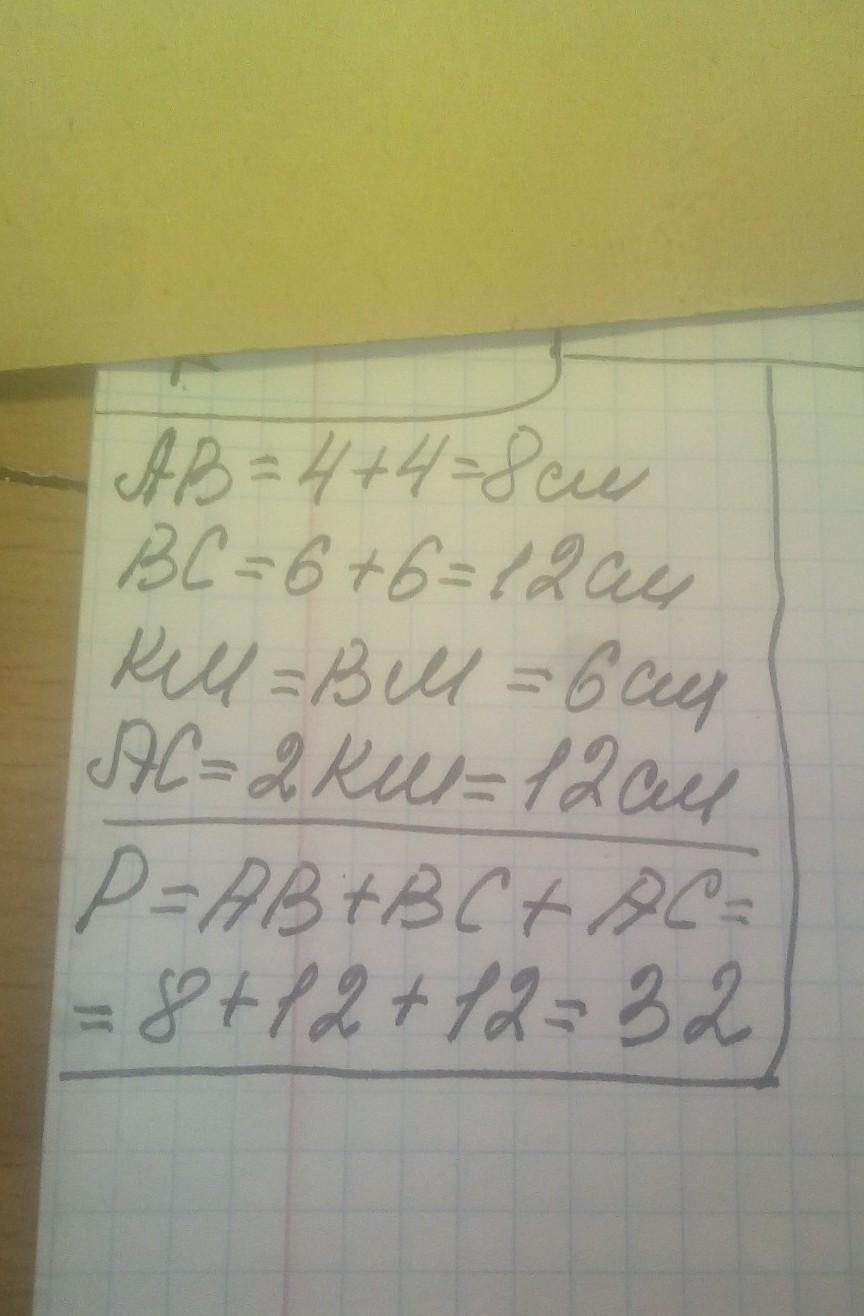 AB = 4 + 4 = 8 см
BC = 6 + 6 = 12 см
KM = BM = 6 см
AC = 2 KM = 12 см
P = AB + BC + AC =
= 8 + 12 + 12 = 32